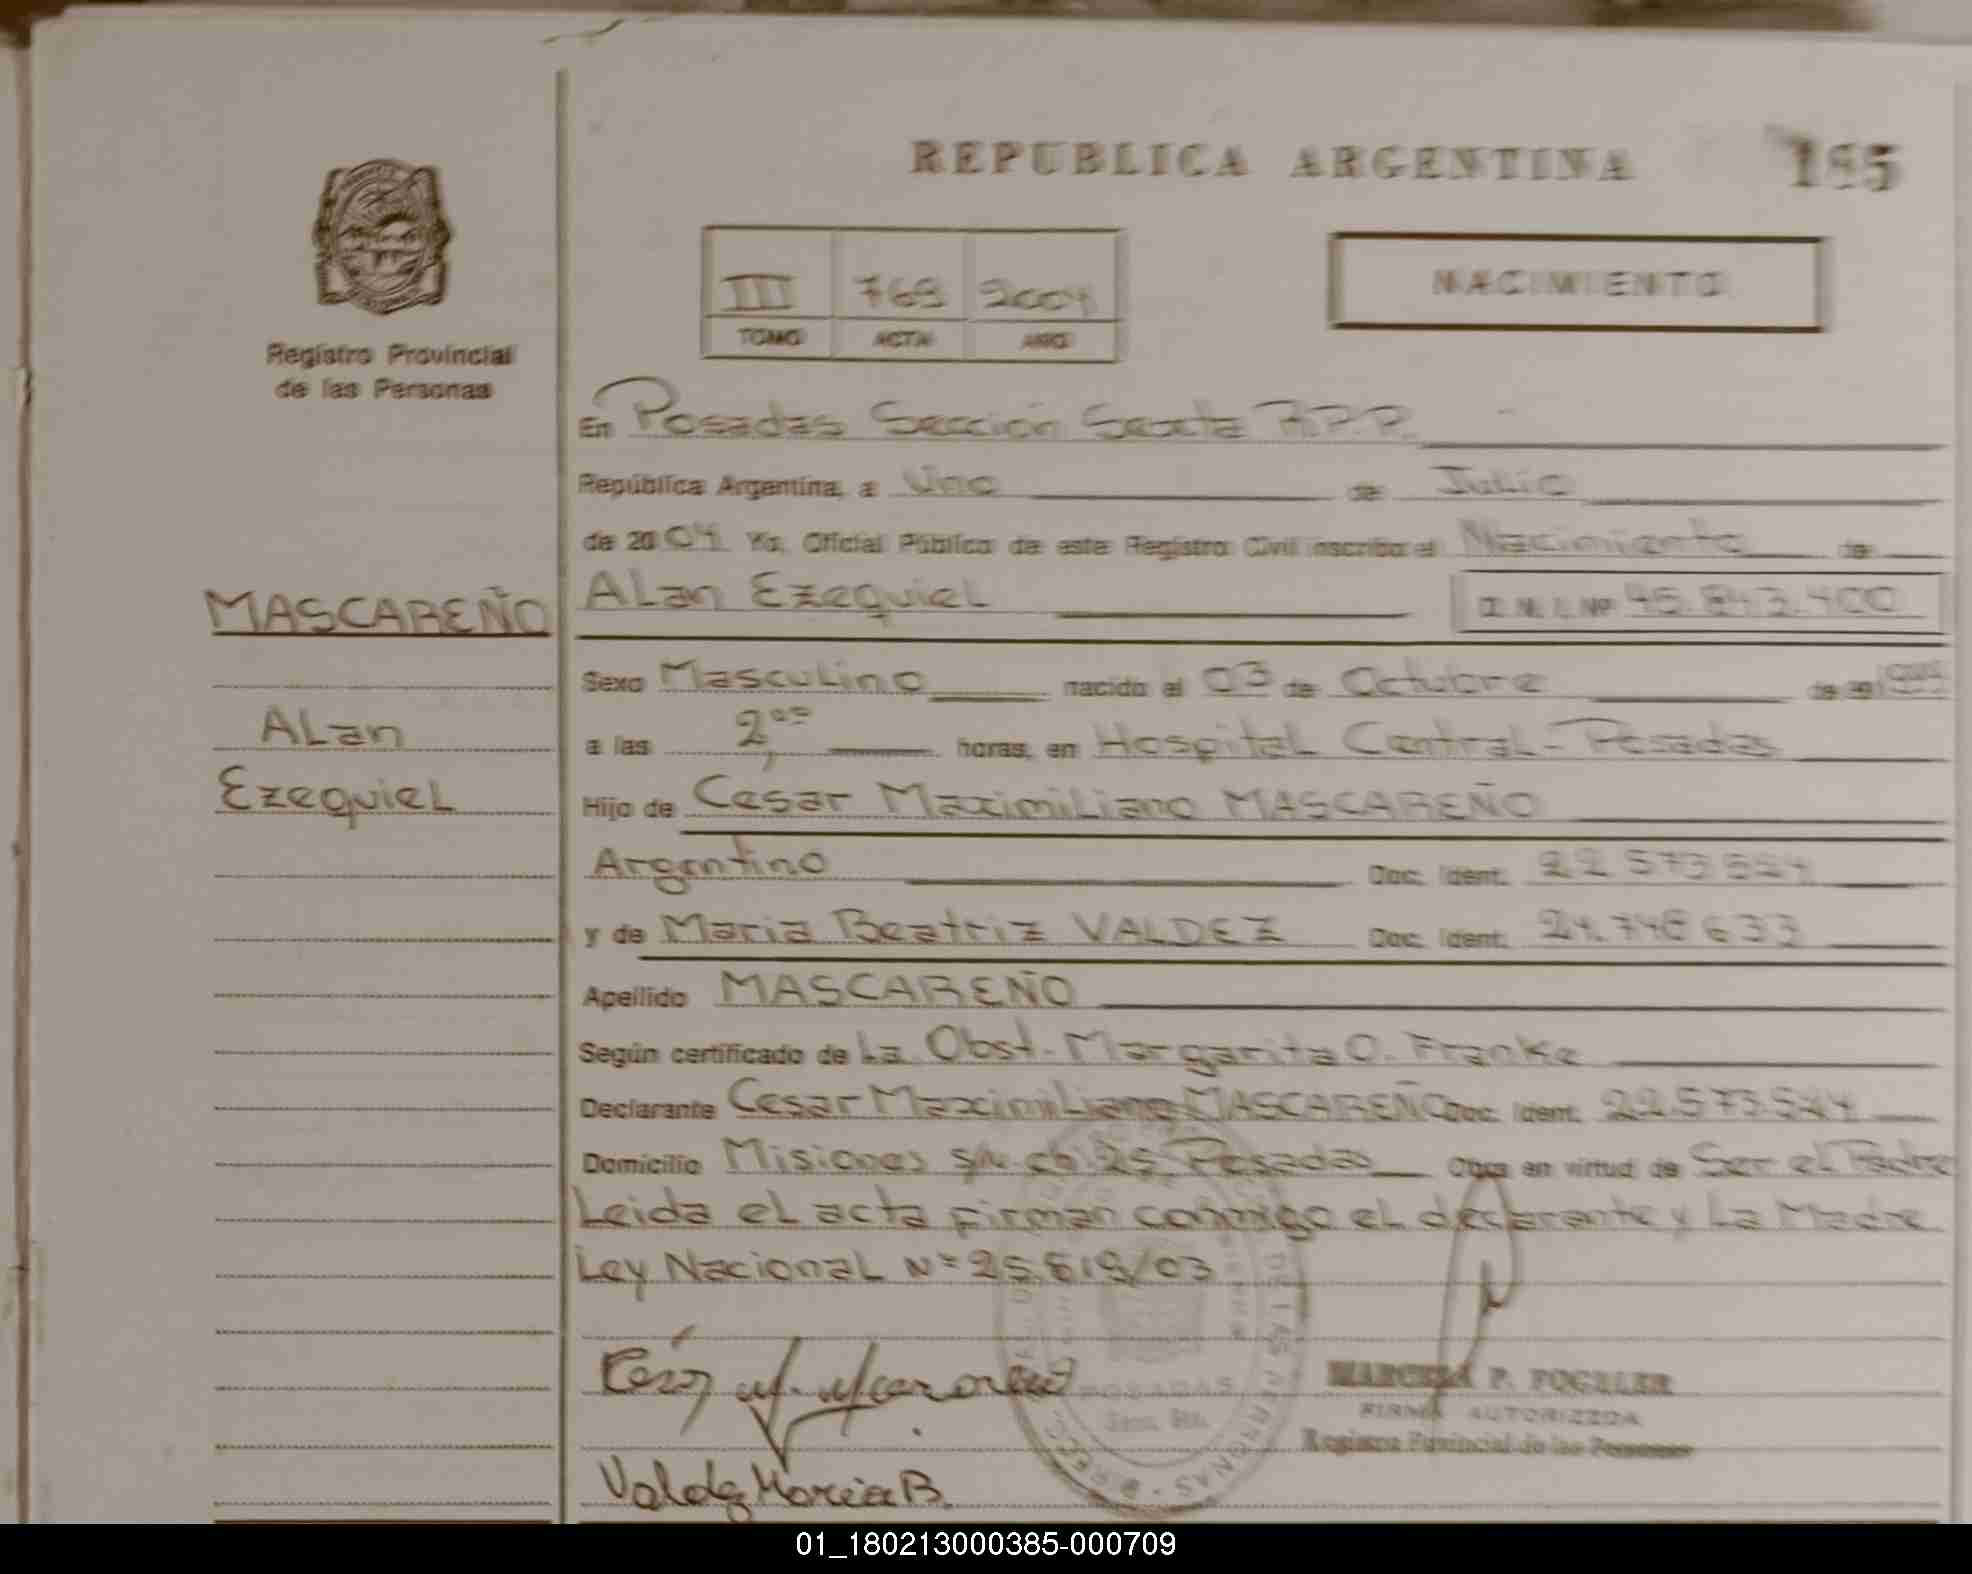 REPUBLICA ARGENTINA 195
III 769 2004
TOMO ACTA AÑO
NACIMIENTO
Registro Provincial
de las Personas
En Posadas Sección Sexta R.P.P.
República Argentina, a Uno de Julio
de 2004 Yo, Oficial Público de este Registro Civil inscribo el Nacimiento de
MASCAREÑO
Alan Ezequiel D.N.I. Nº 45.843.400
Sexo Masculino nacido el 03 de Octubre de
Alan
a las 2,00 horas, en Hospital Central - Posadas
Ezequiel
Hijo de Cesar Maximiliano MASCAREÑO
Argentino Doc. Ident. 22.573.524
y de Maria Beatriz VALDEZ Doc. Ident. 24.748.633
Apellido MASCAREÑO
Según certificado de La Obst. Margarita O. Franke
Declarante Cesar Maximiliano MASCAREÑO Doc. Ident. 22.573.524
Domicilio Misiones s/n ch 25 Posadas Obra en virtud de Ser el Padre
Leida el acta firman conmigo el declarante y La Madre
Ley Nacional Nº 25.819/03
POSADAS
MARCELA P. FOGELER
FIRMA AUTORIZZDA
Registro Povincial de las Personas
Valdez Maria B.
01_180213000385-000709